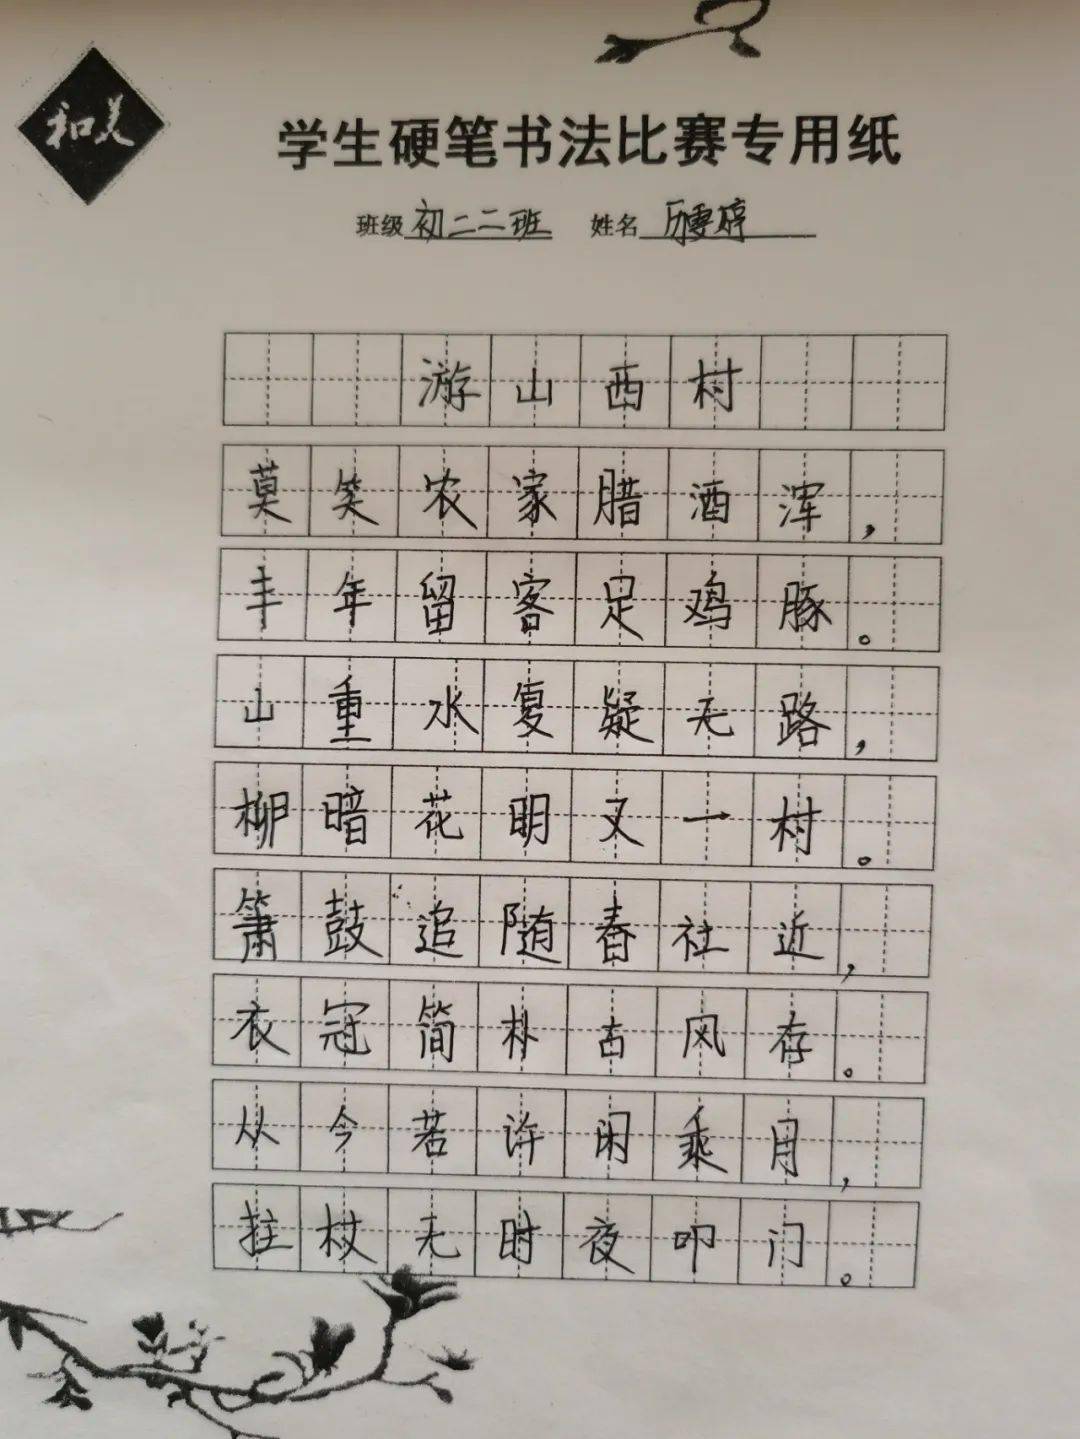 和美
学生硬笔书法比赛专用纸
班级 初二二班 姓名 厉雯婷
游山西村
莫笑农家腊酒浑，
丰年留客足鸡豚。
山重水复疑无路，
柳暗花明又一村。
箫鼓追随春社近，
衣冠简朴古风存。
从今若许闲乘月，
拄杖无时夜叩门。